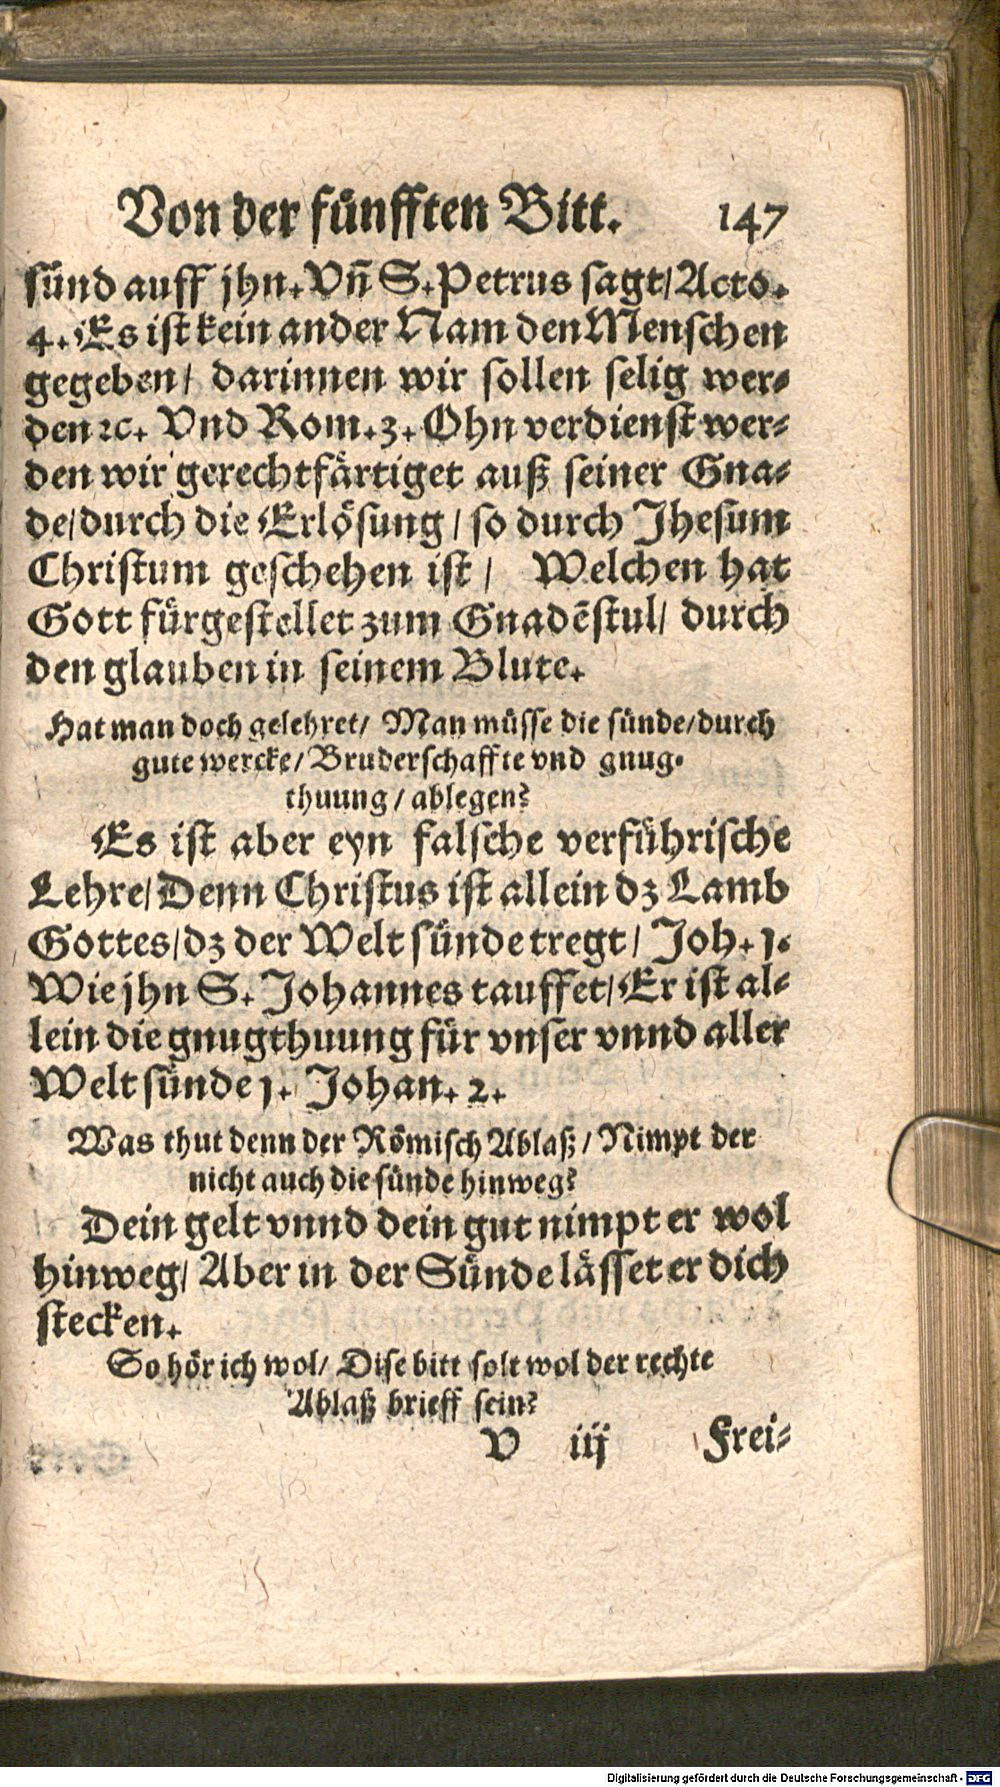 Von der fünfften Bitt. 147
sünd auff jhn. Vñ S. Petrus sagt/ Acto.
4. Es ist kein ander Nam den Menschen
gegeben/ darinnen wir sollen selig wer-
den ꝛc. Vnd Rom. 3. Ohn verdienst wer-
den wir gerechtfärtiget auß seiner Gna-
de/ durch die Erlösung/ so durch Jhesum
Christum geschehen ist/ Welchen hat
Gott fürgestellet zum Gnadẽstul/ durch
den glauben in seinem Blute.
Hat man doch gelehret/ Man müsse die sünde/ durch
gute wercke/ Bruderschaffte vnd gnug-
thuung/ ablegen?
Es ist aber eyn falsche verführische
Lehre/ Denn Christus ist allein dz Lamb
Gottes/ dz der Welt sünde tregt/ Joh. 1.
Wie jhn S. Johannes tauffet/ Er ist al-
lein die gnugthuung für vnser vnnd aller
Welt sünde 1. Johan. 2.
Was thut denn der Römisch Ablaß/ Nimpt der
nicht auch die sünde hinweg?
Dein gelt vnnd dein gut nimpt er wol
hinweg/ Aber in der Sünde lässet er dich
stecken.
So hör ich wol/ Dise bitt solt wol der rechte
Ablaß brieff sein?
V iij Frei-
Digitalisierung gefördert durch die Deutsche Forschungsgemeinschaft - DFG